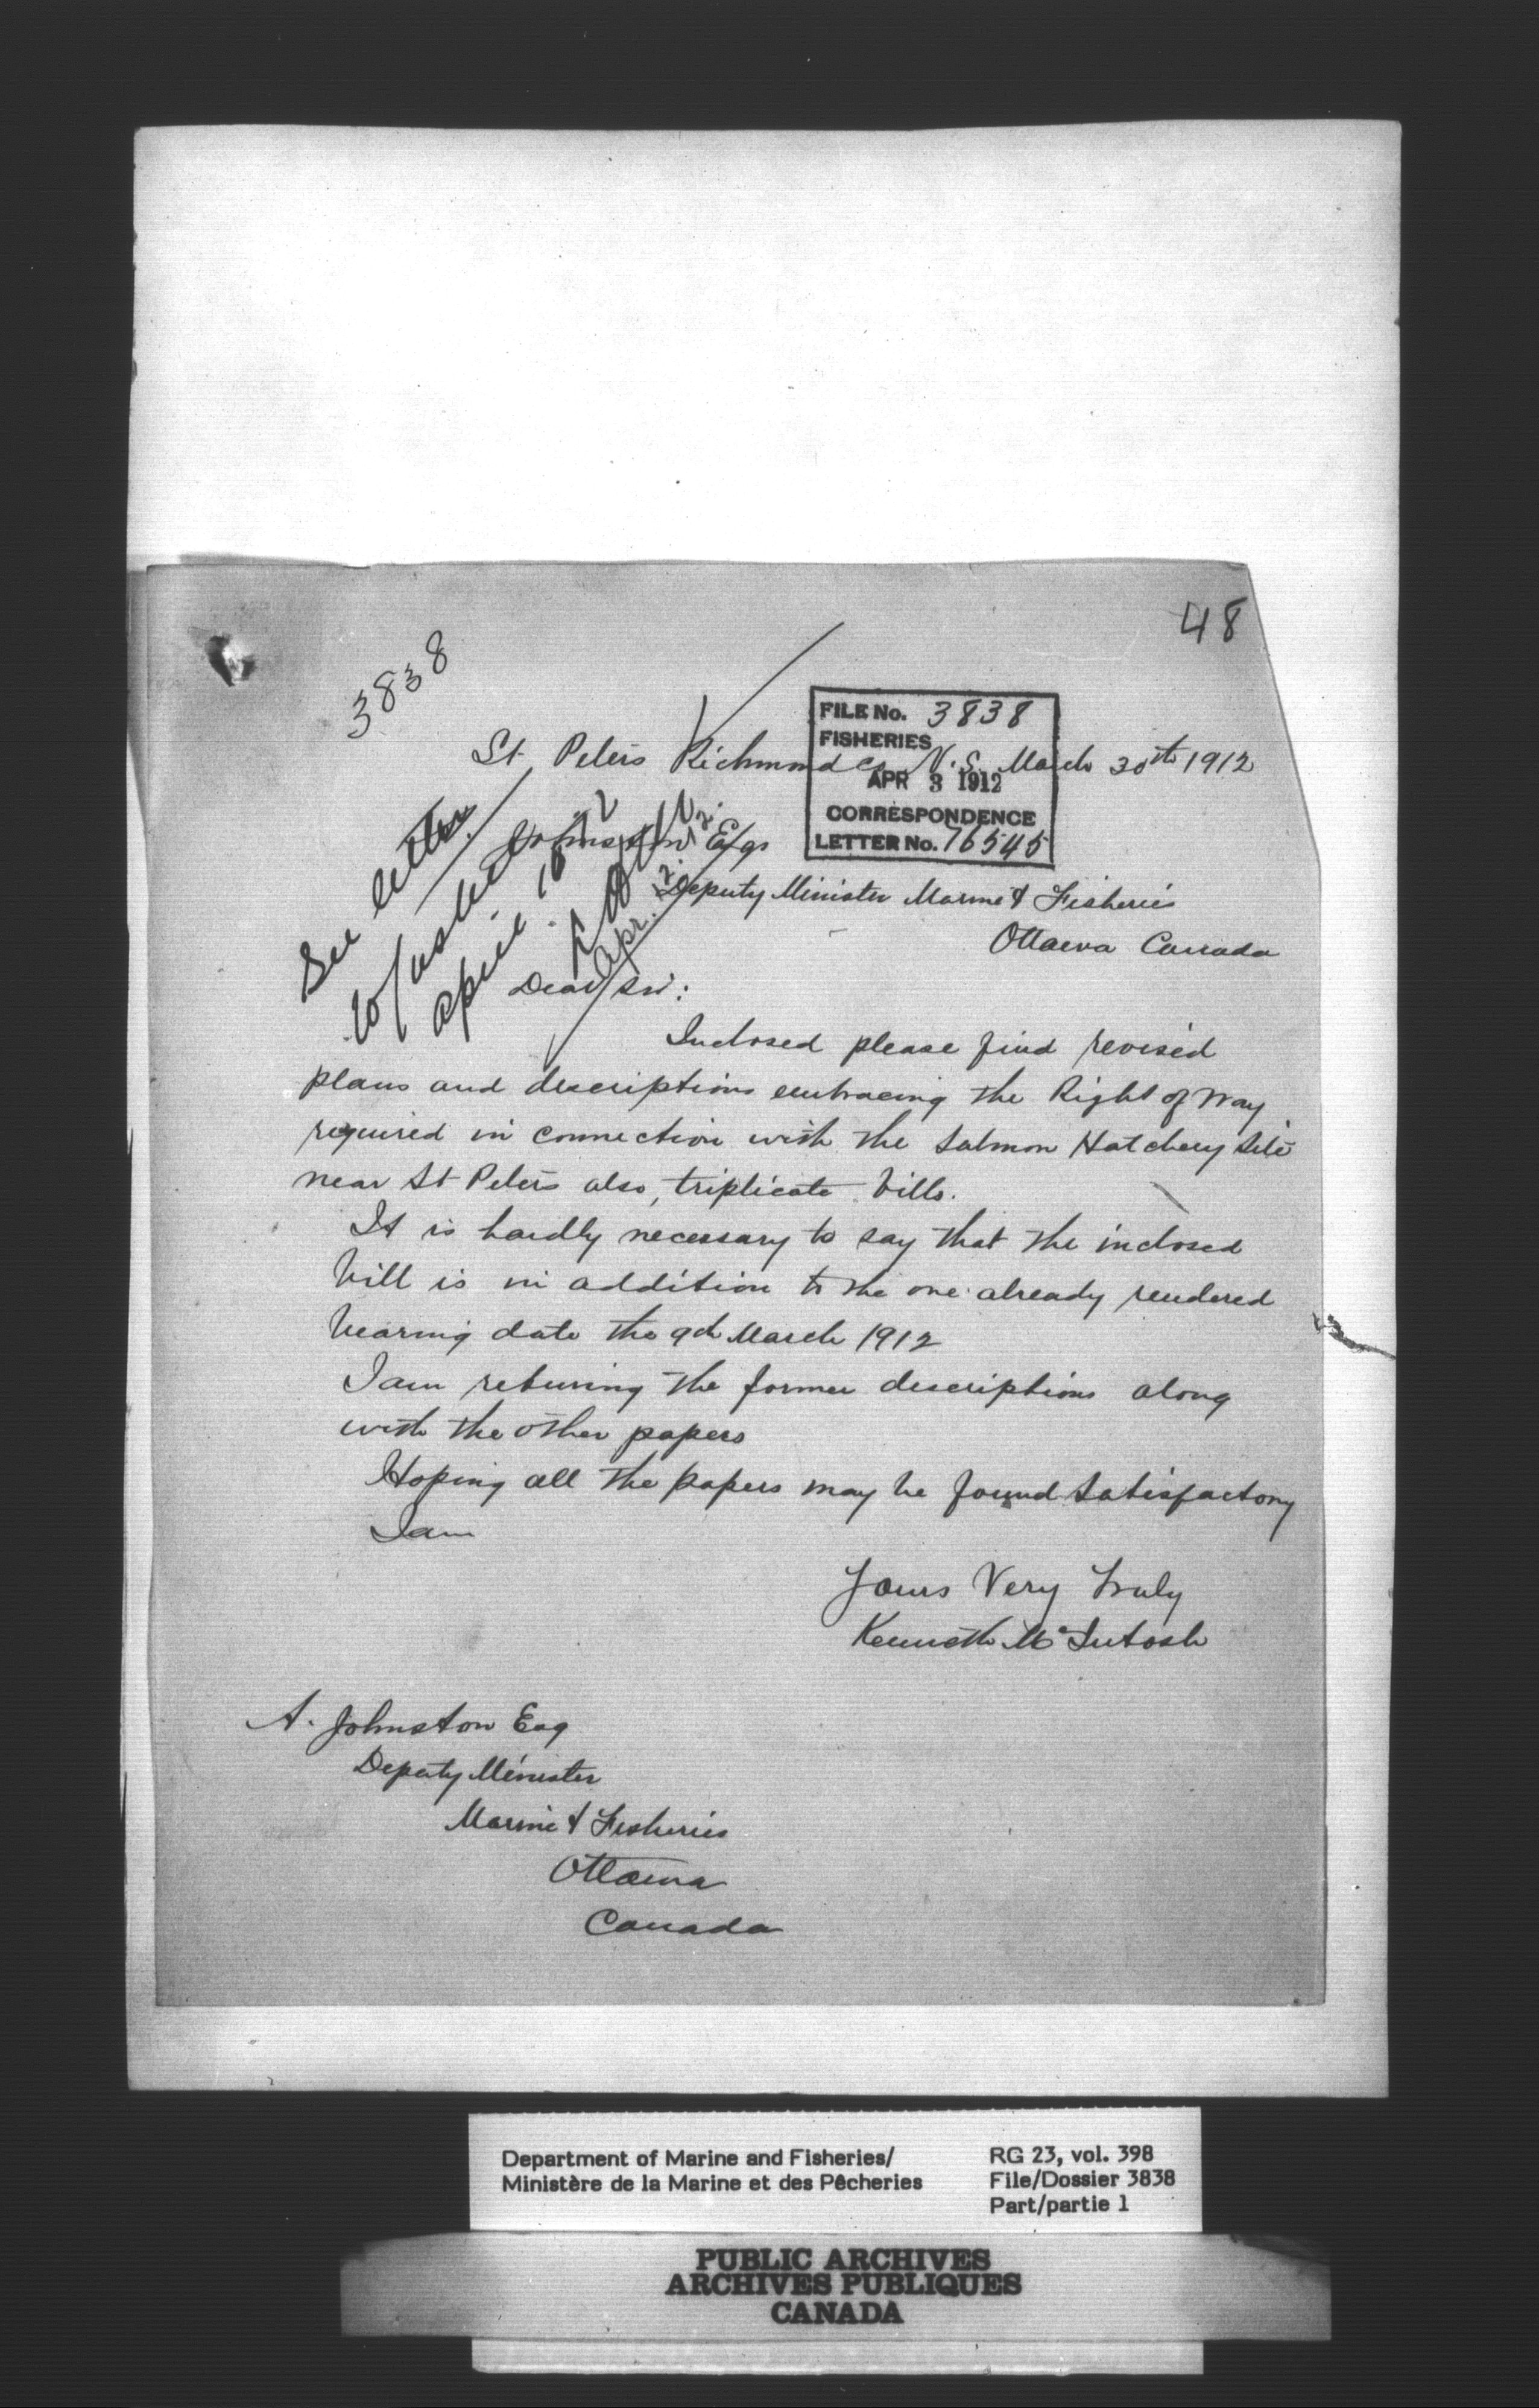 48
3838
FILE No. 3838
FISHERIES
APR 3 1912
CORRESPONDENCE
LETTER No. 76545
St Peters Richmond Co N.S. March 30th 1912
See letter
to
april 16
Apr.
Johnston Esq
Deputy Minister Marine & Fisheries
Ottawa Canada
Dear Sir:
Inclosed please find revised
plans and descriptions embracing the Right of Way
required in connection with the Salmon Hatchery Site
near St Peters also, triplicate bills.
It is hardly necessary to say that the inclosed
bill is in addition to the one already rendered
bearing date the 9th March 1912
I am returing the former descriptions along
with the other papers
Hoping all the papers may be found Satisfactory
I am
Yours Very Truly
Kenneth McIntosh
A. Johnston Esq
Deputy Minister
Marine & Fisheries
Ottawa
Canada
Department of Marine and Fisheries/
Ministère de la Marine et des Pêcheries
RG 23, vol. 398
File/Dossier 3838
Part/partie 1
PUBLIC ARCHIVES
ARCHIVES PUBLIQUES
CANADA